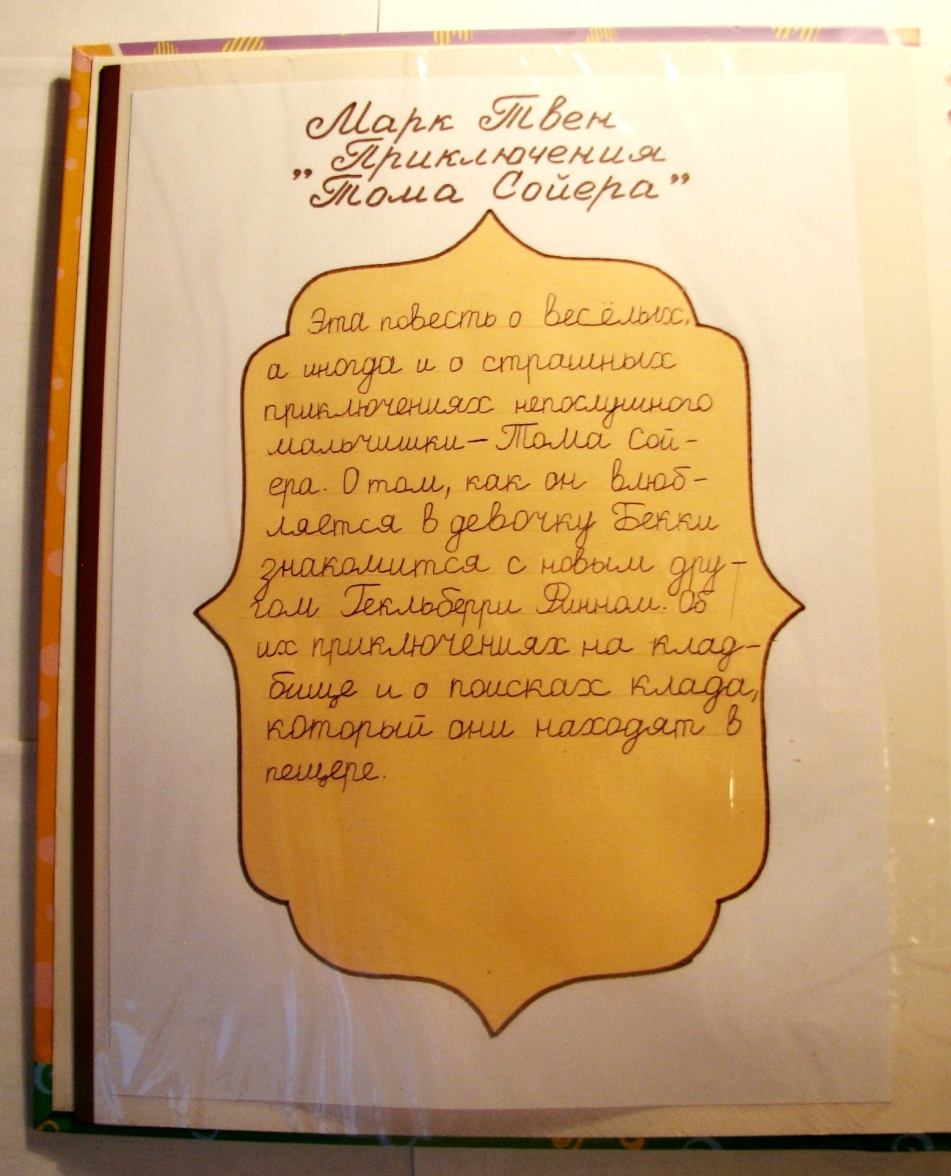 Марк Твен
„Приключения
Тома Сойера”
Эта повесть о весёлых,
а иногда и о страшных
приключениях непослушного
мальчишки – Тома Сой-
ера. О том, как он влюб-
ляется в девочку Бекки
знакомится с новым дру-
гом Гекльберри Финном. Об
их приключениях на клад-
бище и о поисках клада,
который они находят в
пещере.